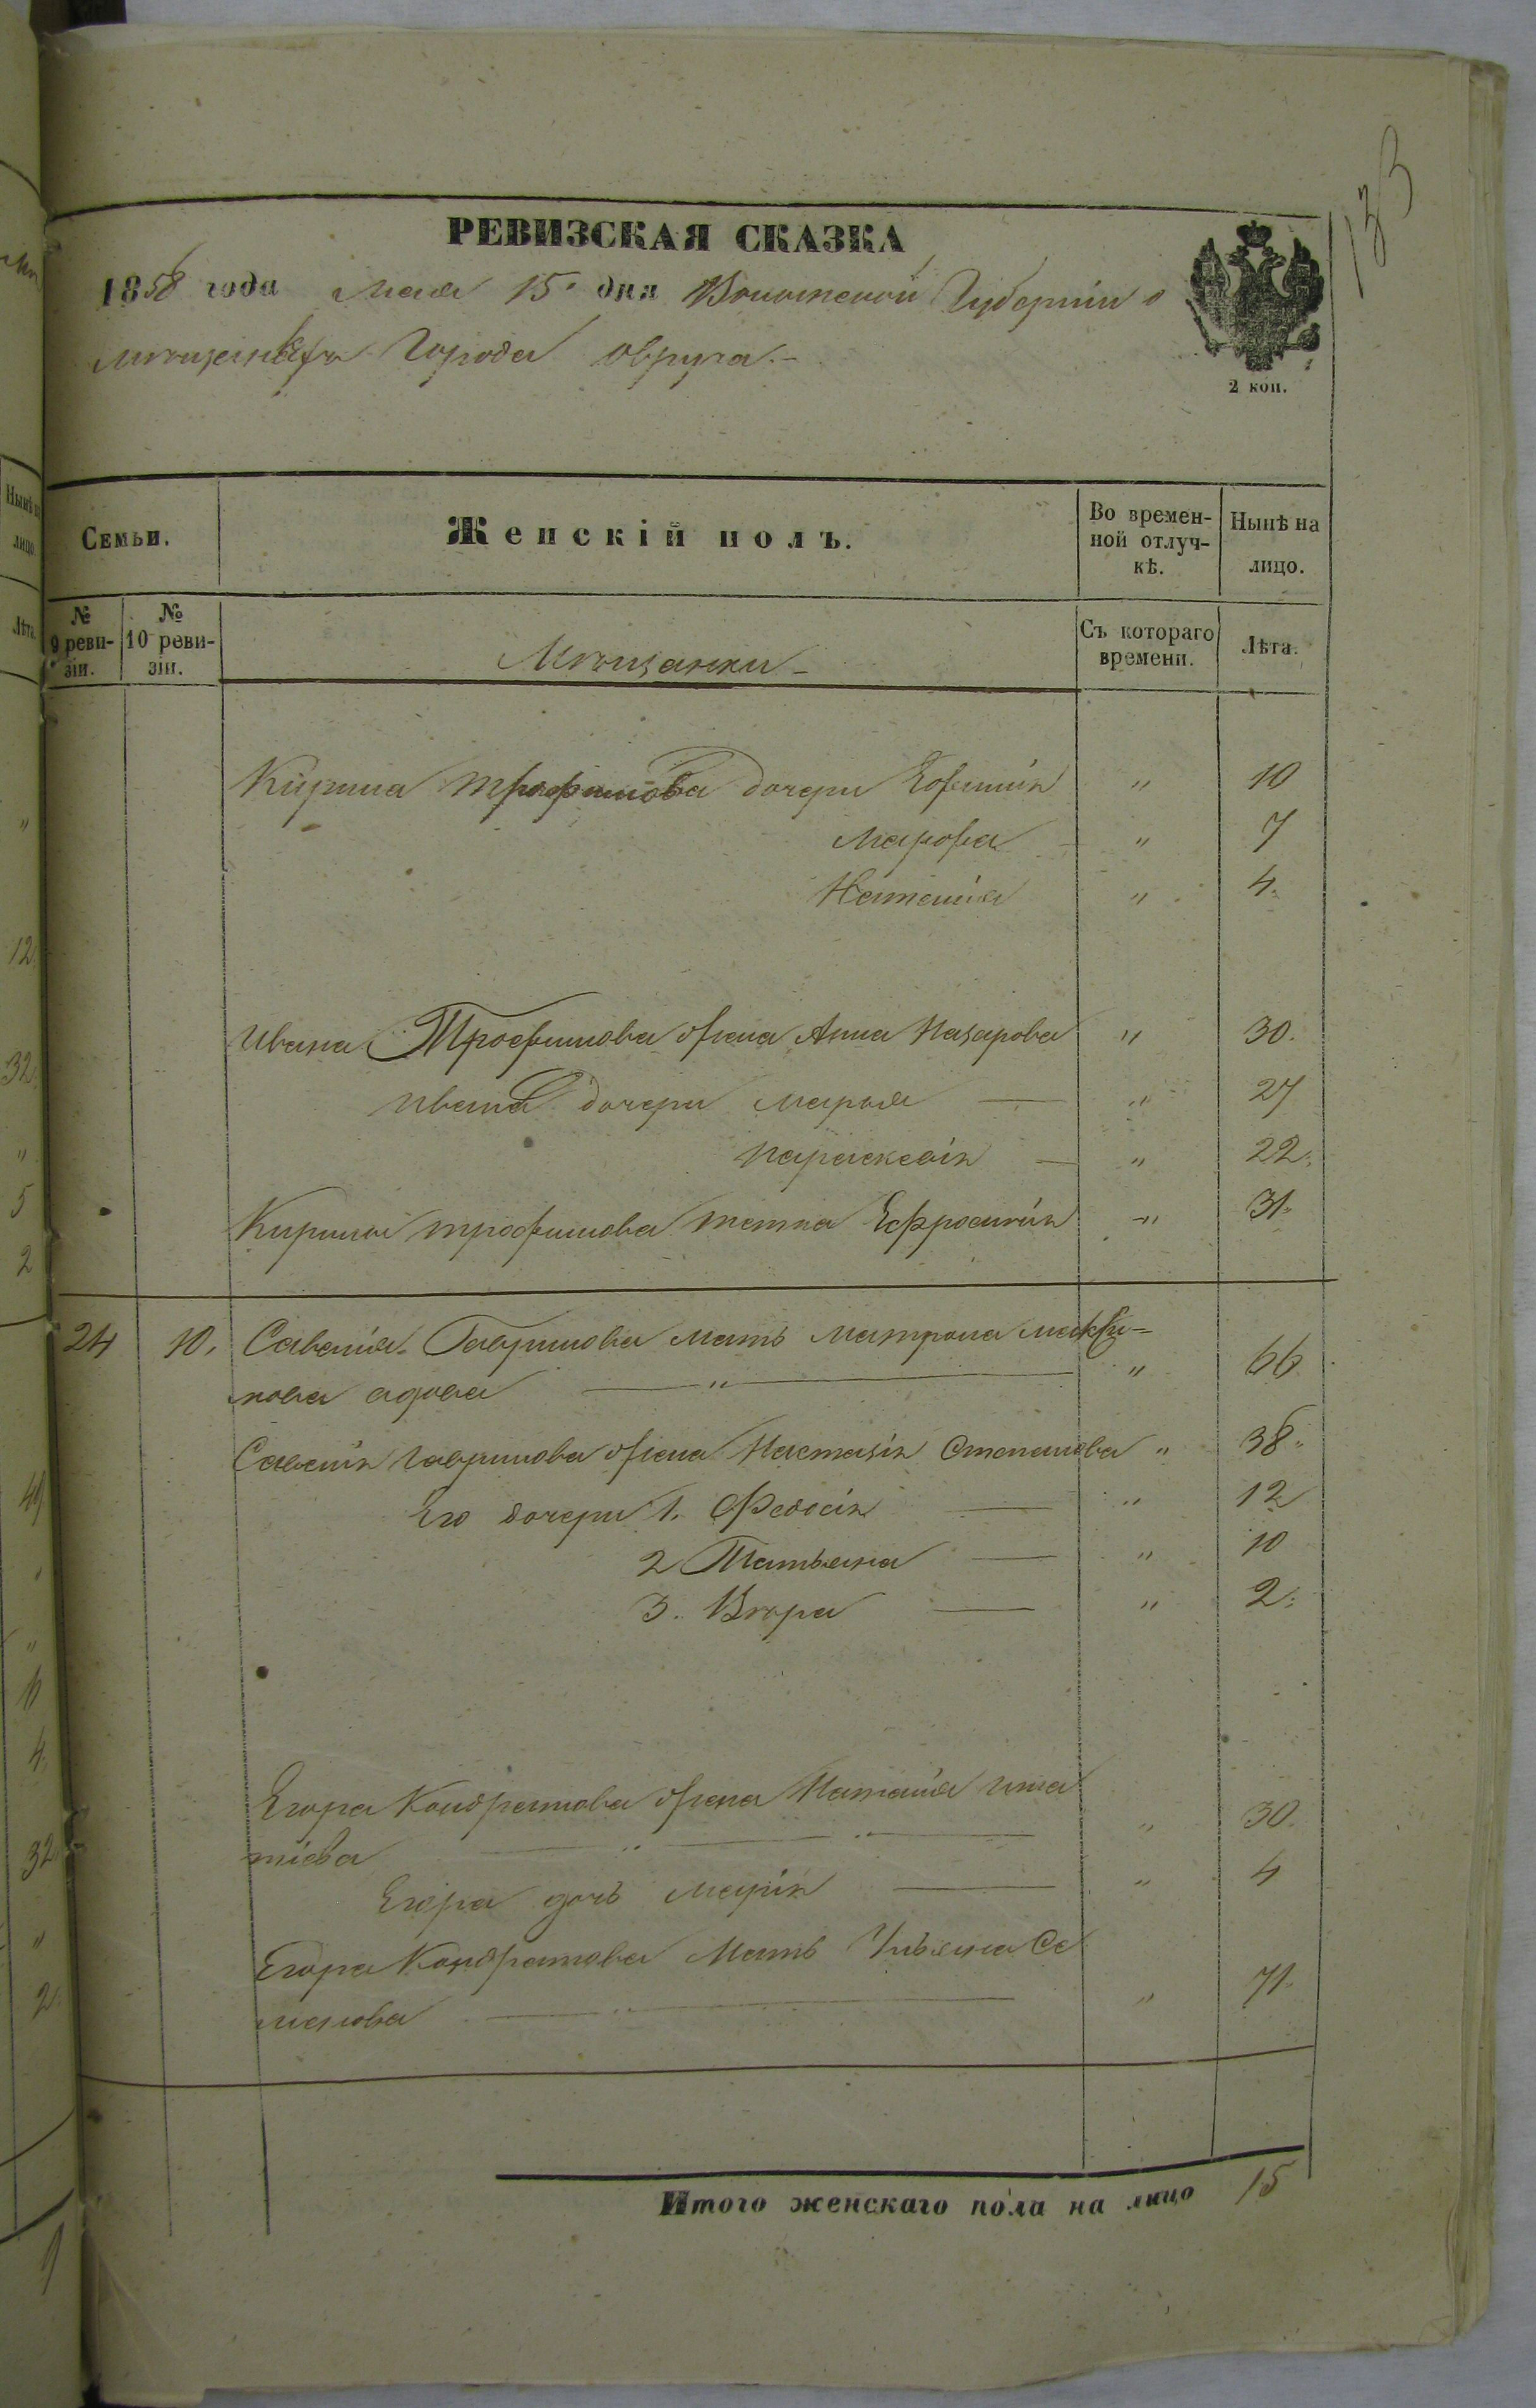 133
РЕВИЗСКАЯ СКАЗКА
1858 года Мая 15 дня Волынской Губерніи о
мѣщанахъ Города Овруча.-
2 коп.
Семьи.
Женскій полъ.
Во времен-
ной отлуч-
кѣ.
Нынѣ на
лицо.
№
9 реви-
зіи.
№
10 реви-
зіи.
Мѣщанки
Съ котораго
времени.
Лѣта.
Кирила Трофимова дочери Евфимія " 10
Марфа " 7
Наталія " 4.
Ивана Трофимова жена Анна Назарова " 30.
Ивана дочери Марья — " 27
Параскевія — " 22.
Кирилы Трофимова тетка Ефросинія " 31.
24 10. Савелія Гаврилова мать Матрона
нова вдова — " — " 66
Савелія Гаврилова жена Настазія Степанова " 38.
Его дочери 1. Федосія — " 12
2 Татьяна — " 10
3. Вѣра — " 2.
Егора Кондратова жена Наталія Игна
тіева — " — " — " 30.
Егора дочь Марія — " 4
Егора Кондратова Мать Ульяна Се
менова — " — " 71.
Итого женскаго пола на лицо 15